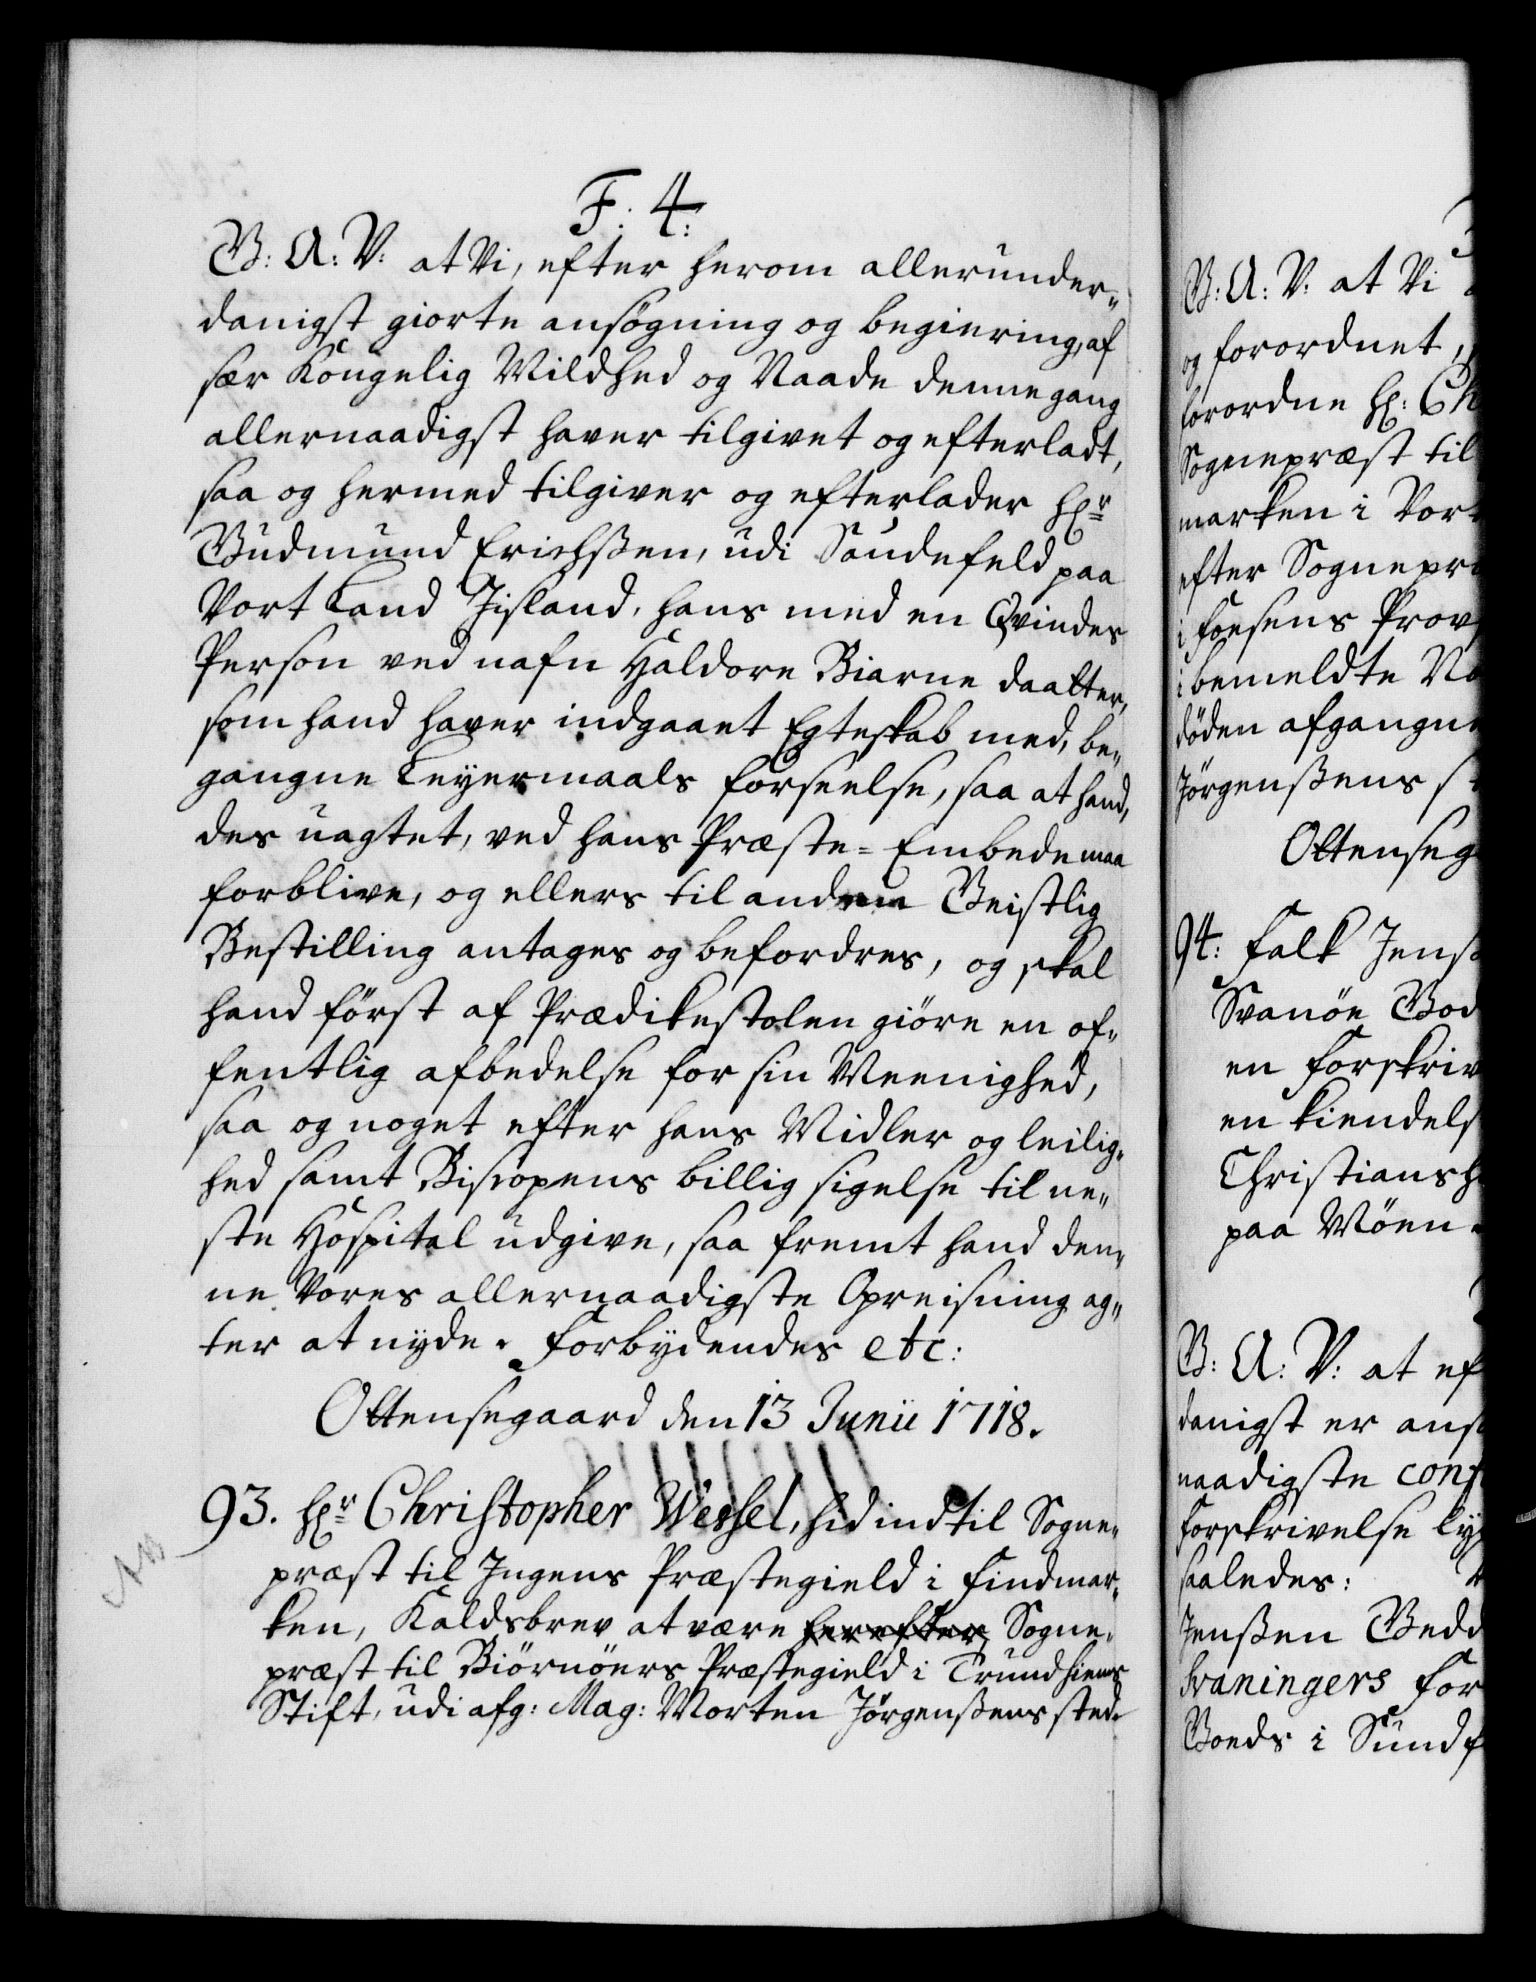 F: 4:
G: A: V: at Vi, efter herom allerunder-
danigst giorte ansøgning og begiering, af
sær Kongelig Mildhed og Naade denne gang
allernaadigst haver tilgivet og efterladt,
saa og hermed tilgiver og efterlader Hr
Gudmund Erichssen, udi Saudefeld paa
Vort Land Jisland, hans med en Qvindes
Person ved nafn Haldore Biarne daatter,
som hand haver indgaaet Egteskab med, be-
gangne Leyermaals forseelse, saa at hand,
des uagtet, ved hans Præste-Embede maa
forblive, og ellers til anden Geistlig
Bestilling antages og befordres, og skal
hand først af Prædikestolen giøre en of-
fentlig afbedelse for sin Meenighed,
saa og noget efter hans Midler og leilig-
hed samt Biscopens billig sigelse til ne-
ste Hospital udgive, saa fremt hand den-
ne Vores allernaadigste Opreisning ag-
ter at nyde. Forbydendes etc:
Ottensegaard den 13 Junii 1718.
93. Hr Christopher Wessel, hid indtil Sogne-
præst til Ingens Præstegield i Findmar-
ken, Kaldsbrev at være herefter Sogne-
præst til Biørnøers Præstegield i Trundhiems
Stift, udi afg: Mag: Morten Jørgenssens sted.
NB
G: A: V: at Vi
og forordnet,
forordne Hr: Ch
Sognepræst til
marken i Vort
efter Sognepræ
i Foesens Prov
i bemeldte No
døden afgangne
Jørgenssens st
Ottenseg
94: Falk Jenss
Svanøe God
en Forskriv
en kiendels
Christiansh
paa Møen
G: A: V: at ef
danigst er ans
naadigste conf
forskrivelse ly
saaledes:
Jenssen Gedd
Svaningers for
Goeds i Sundf